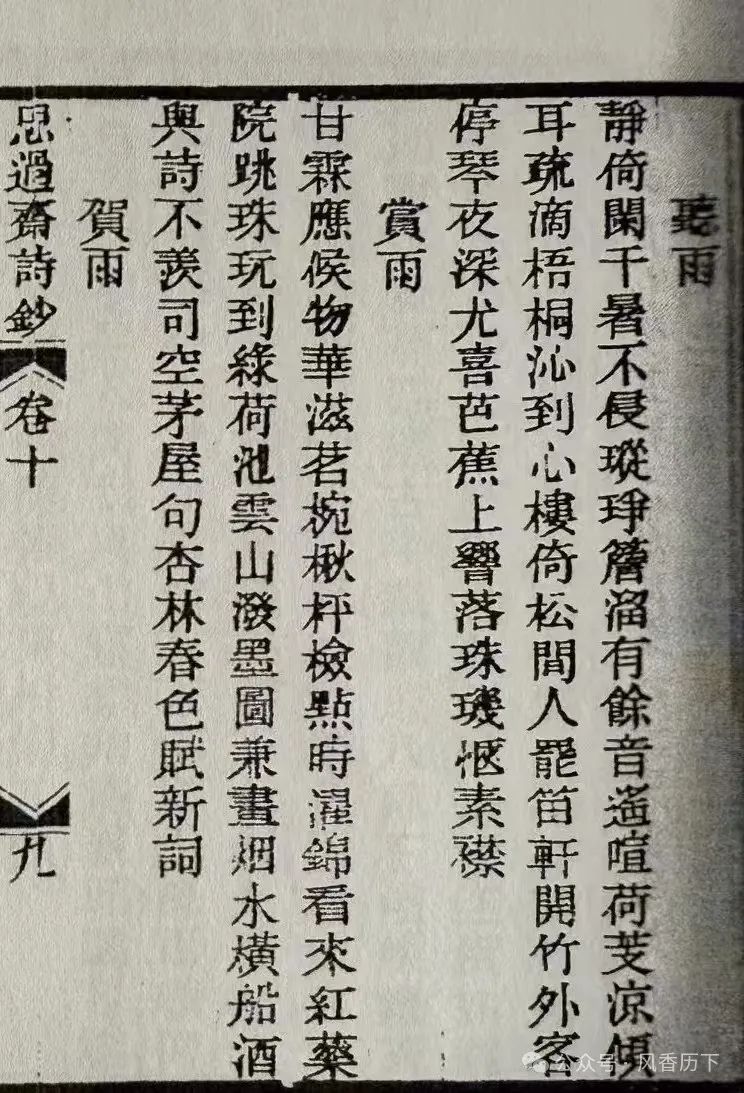 聽雨
靜倚闌干暑不侵瑽琤簷溜有餘音遙喧荷芰涼傾
耳疏滴梧桐沁到心樓倚松間人罷笛軒開竹外客
停琴夜深尤喜芭蕉上響落珠璣愜素襟
賞雨
甘霖應候物華滋茗椀楸枰檢點時濯錦看來紅藥
院跳珠玩到綠荷池雲山潑墨圖兼畫烟水橫船酒
與詩不羨司空茅屋句杏林春色賦新詞
賀雨
思過齋詩鈔
卷十
九
公众号·风香历下